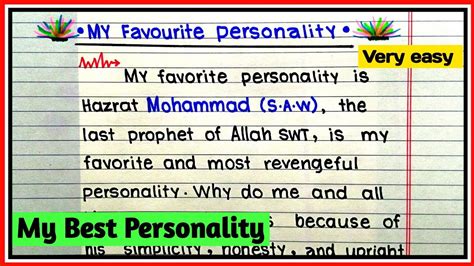 • My Favourite personality •
Very easy
My favorite personality is
Hazrat Mohammad (S.A.W), the
last prophet of Allah SWT, is my
favorite and most revengeful
personality. Why do me and all
My Best Personality
because of
his simplicity, honesty, and upright